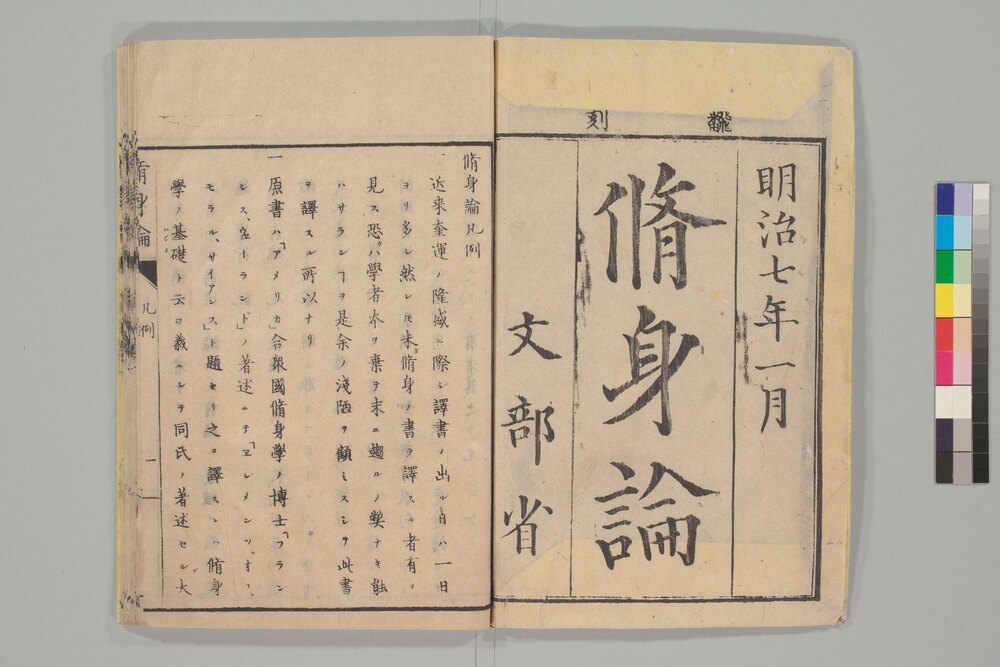 飜刻
明治七年一月
脩身論
文部省
脩身論凡例
一近来奎運ノ隆盛ニ際シ譯書ノ出ル日ハ一日
ヨリ多シ然レ𪜈未脩身ノ書ヲ譯スル者有ヿヲ
見ス恐クハ學者本ヲ棄テ末ニ趨ルノ弊ナキ能
ハサランヿヲ是余ノ淺陋ヲ顧ミスシテ此書
ヲ譯スル所以ナリ
一原書ハ「アメリカ」合衆國脩身學ノ博士「フラン
シス、ウェーランド」ノ著述ニテ「エレメンツ、オフ、
モラル、サイアンス」ト題セリ之ヲ譯スレハ脩身
學ノ基礎ト云フ義ニシテ同氏ノ著述セル大
脩身論
凡例
一